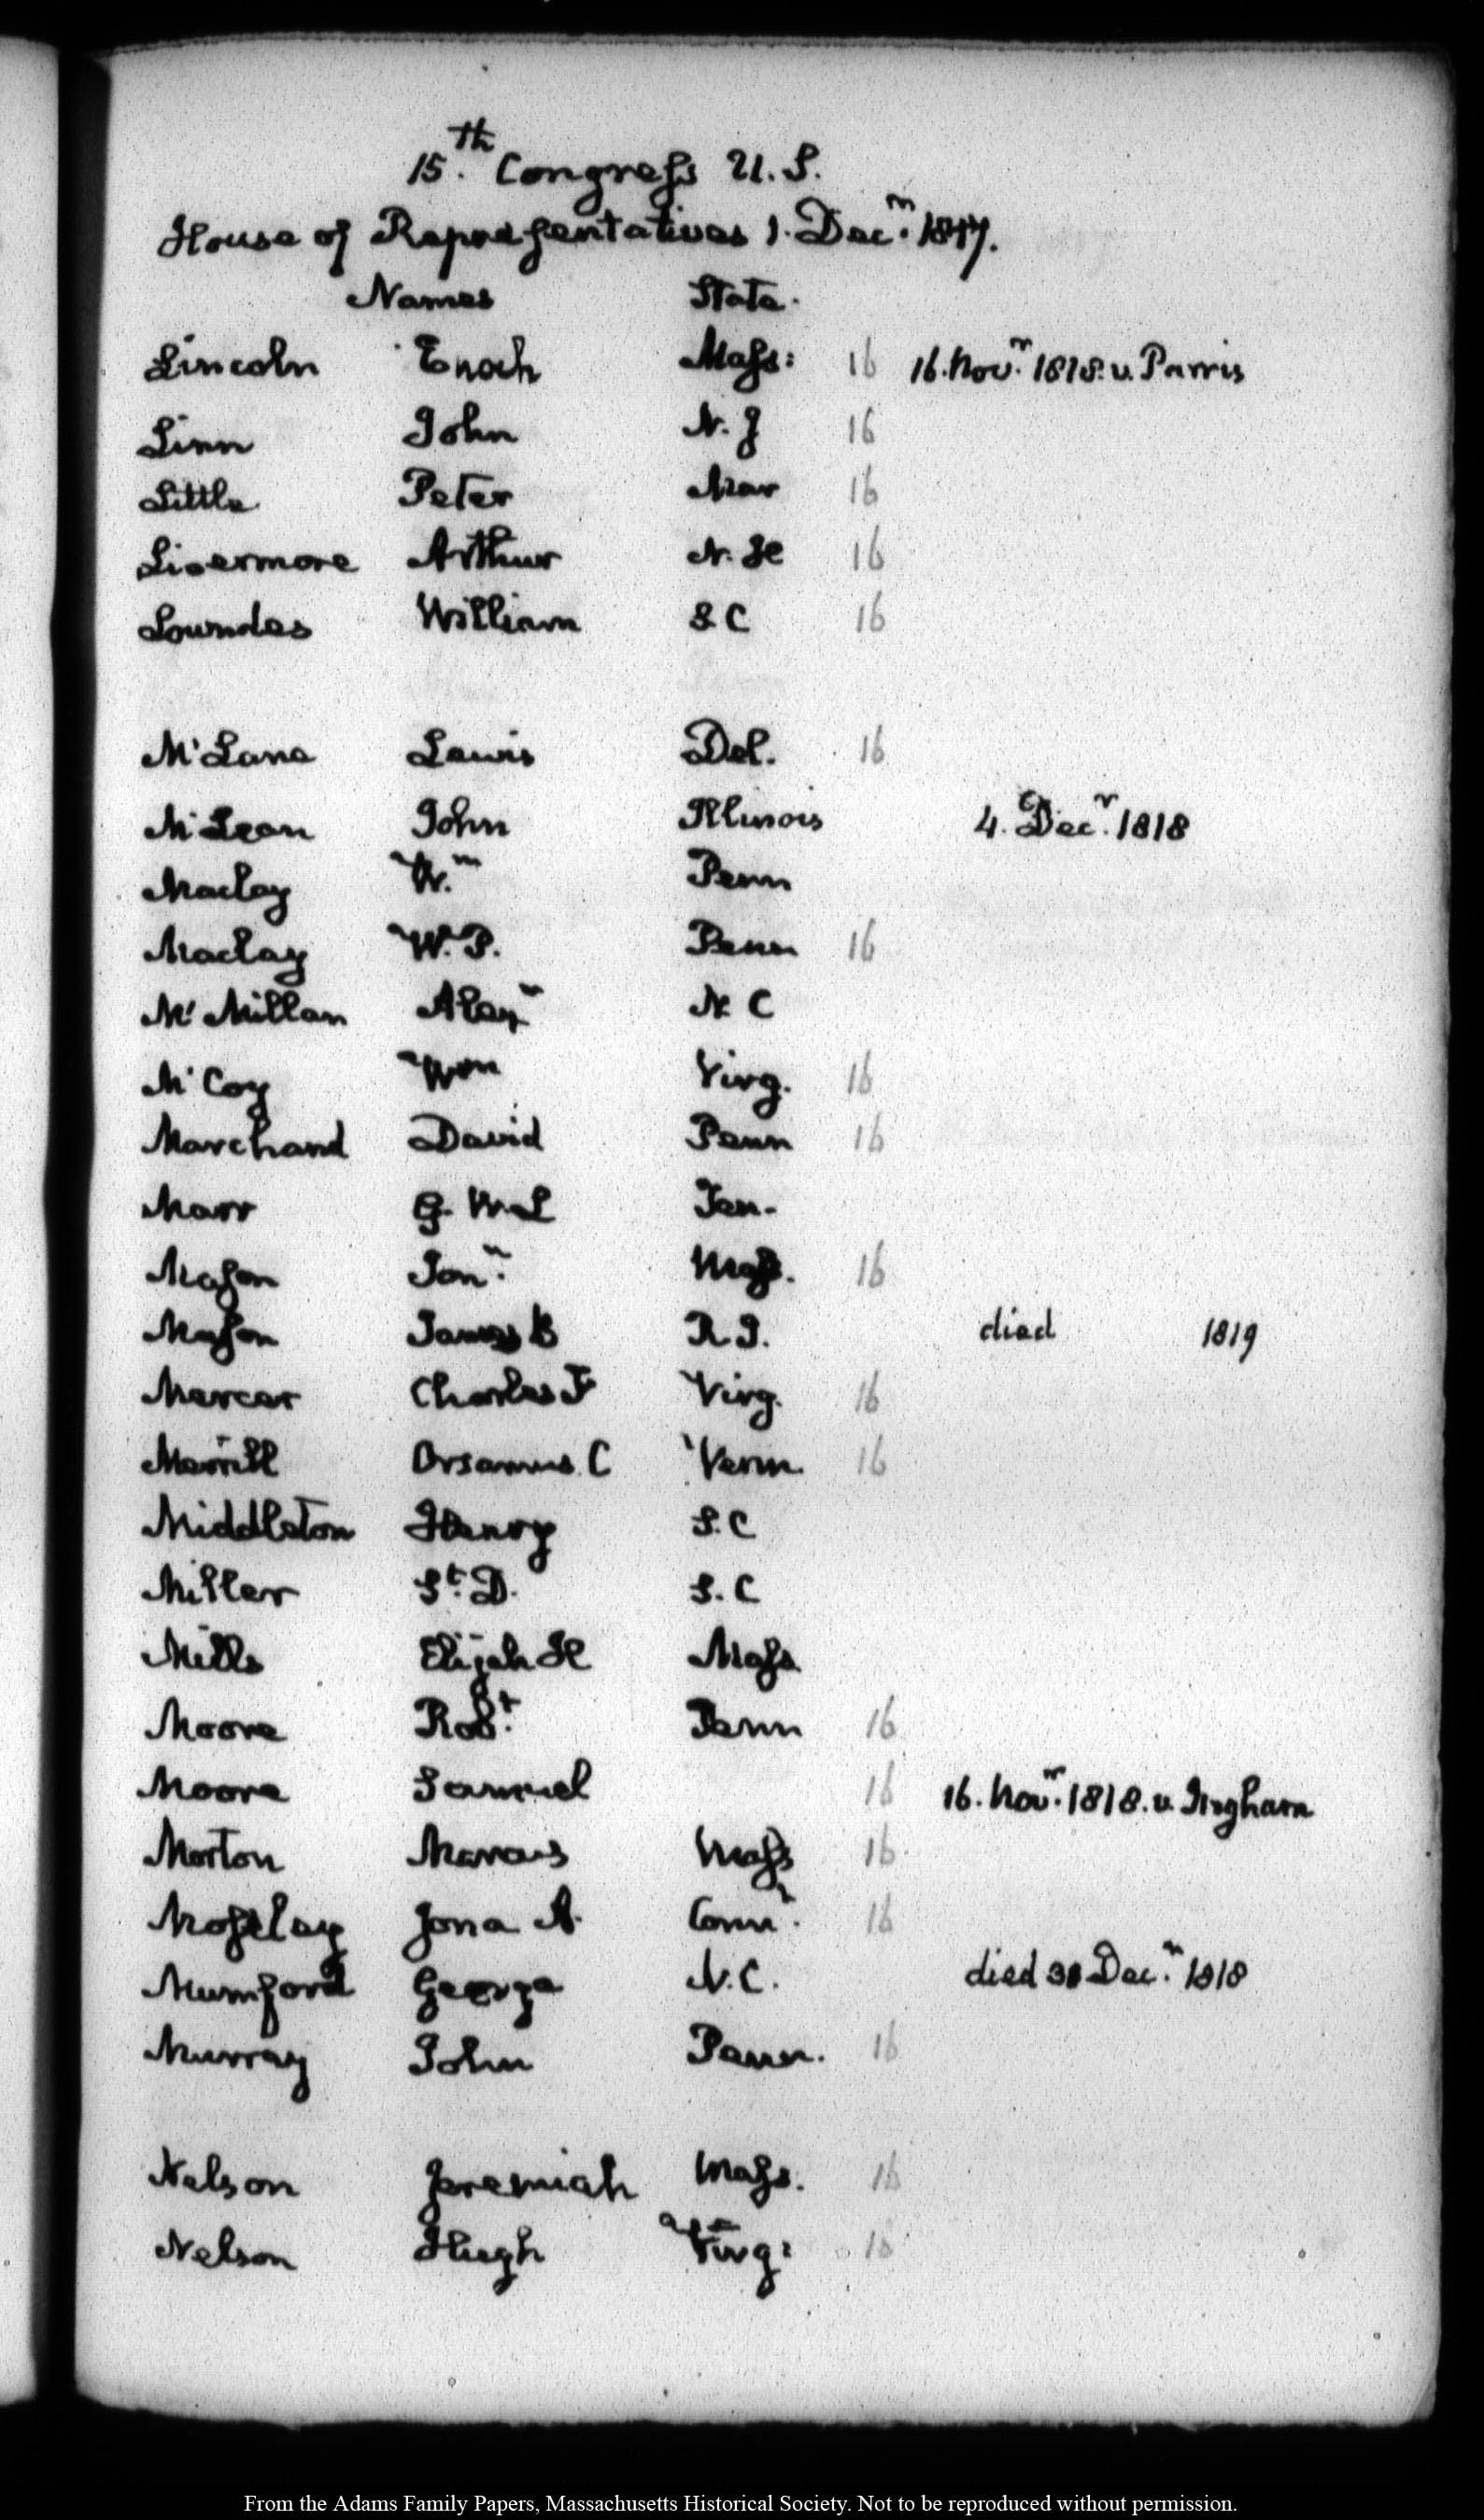 15.th Congress U.S.
House of Representatives 1. Decr. 1817.
Names State.
Lincoln Enoch Mass: 16 16. Novr. 1818. v. Parris
Linn John N. J 16
Little Peter Mar 16
Livermore Arthur N. H 16
Lowndes William S C 16
M'Lane Lewis Del. 16
M'Lean John Illinois 4. Decr. 1818
Maclay W.m Penn
Maclay W. P. Penn 16
M'Millan Alexr N C
M'Coy Wm Virg. 16
Marchand David Penn 16
Marr G. W. L Ten.
Mason Jonn. Mass. 16
Mason James B R. I. died 1819
Mercer Charles F Virg. 16
Merrill Orsamus C Verm. 16
Middleton Henry S. C
Miller St. D. S. C
Mills Elijah H Mass
Moore Robt. Penn 16
Moore Samuel 16 16. Novr. 1818. v. Ingham
Morton Marcus Mass 16
Moseley Jona A. Connt. 16
Mumford George N. C. died 31 Decr. 1818
Murray John Penn. 16
Nelson Jeremiah Mass. 16
Nelson Hugh Virg: 16
From the Adams Family Papers, Massachusetts Historical Society. Not to be reproduced without permission.